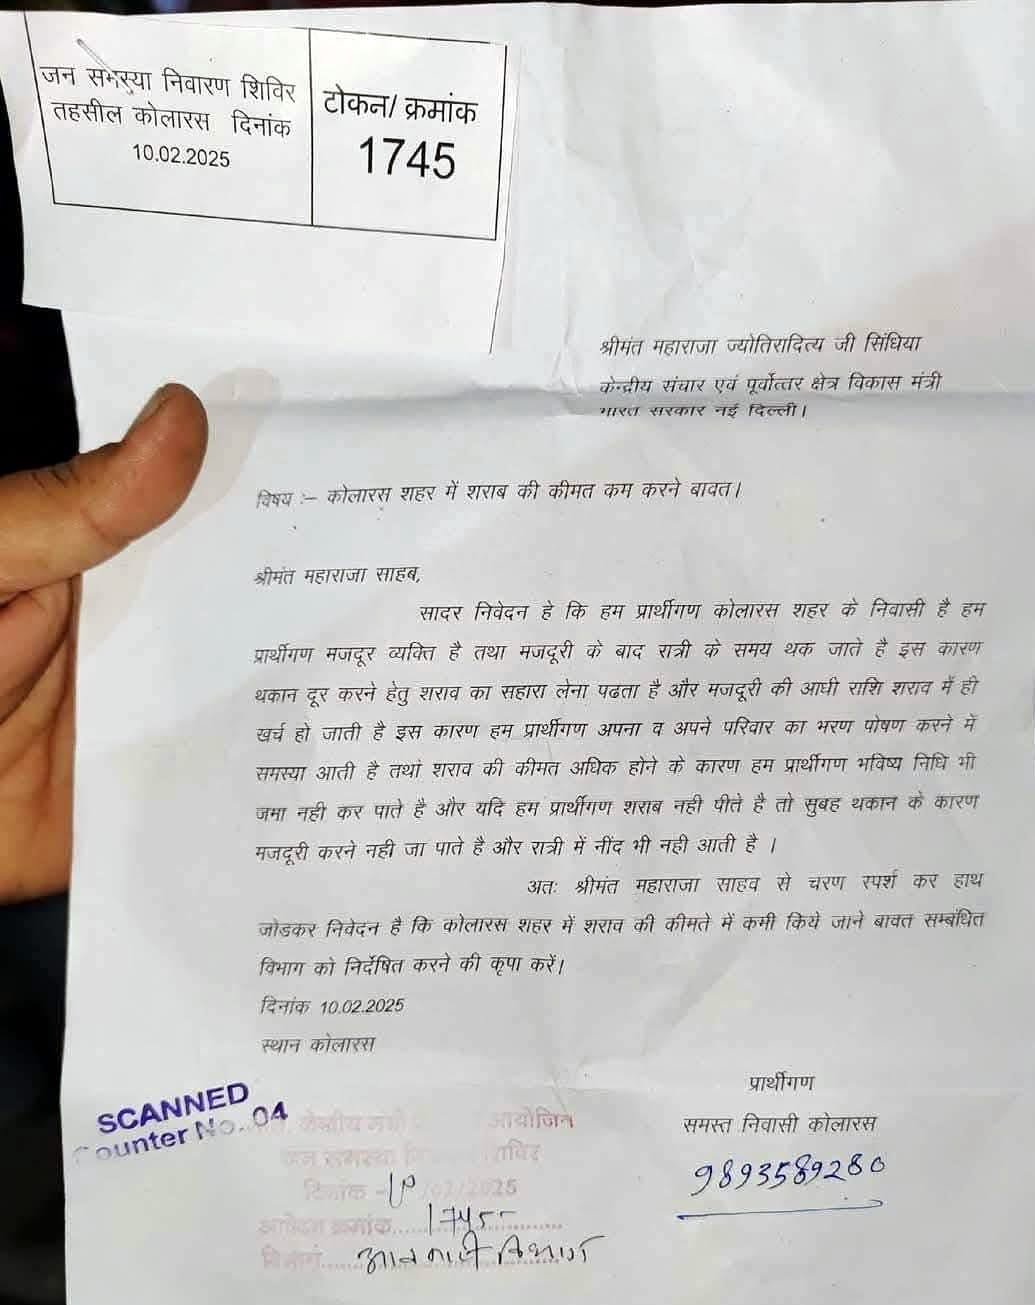 जन समस्या निवारण शिविर
तहसील कोलारस दिनांक
10.02.2025
टोकन/ क्रमांक
1745
श्रीमंत महाराजा ज्योतिरादित्य जी सिंधिया
केन्द्रीय संचार एवं पूर्वोत्तर क्षेत्र विकास मंत्री
भारत सरकार नई दिल्ली।
विषय :– कोलारस शहर में शराब की कीमत कम करने बावत।
श्रीमंत महाराजा साहब,
सादर निवेदन हे कि हम प्रार्थीगण कोलारस शहर के निवासी है हम
प्रार्थीगण मजदूर व्यक्ति है तथा मजदूरी के बाद रात्री के समय थक जाते है इस कारण
थकान दूर करने हेतु शराव का सहारा लेना पढता है और मजदूरी की आधी राशि शराव में ही
खर्च हो जाती है इस कारण हम प्रार्थीगण अपना व अपने परिवार का भरण पोषण करने में
समस्या आती है तथां शराव की कीमत अधिक होने के कारण हम प्रार्थीगण भविष्य निधि भी
जमा नही कर पाते है और यदि हम प्रार्थीगण शराब नही पीते है तो सुबह थकान के कारण
मजदूरी करने नही जा पाते है और रात्री में नींद भी नही आती है ।
अतः श्रीमंत महाराजा साहव से चरण स्पर्श कर हाथ
जोडकर निवेदन है कि कोलारस शहर में शराव की कीमते में कमी किये जाने बावत सम्बंधित
विभाग को निर्देषित करने की कृपा करें।
दिनांक 10.02.2025
स्थान कोलारस
प्रार्थीगण
समस्त निवासी कोलारस
9893589280
SCANNED
Counter No. 04
केन्द्रीय मंत्री आयोजित
जन समस्या शिविर
दिनांक -10/02/2025
आवेदन क्रमांक 1745
विभाग आबकारी विभाग